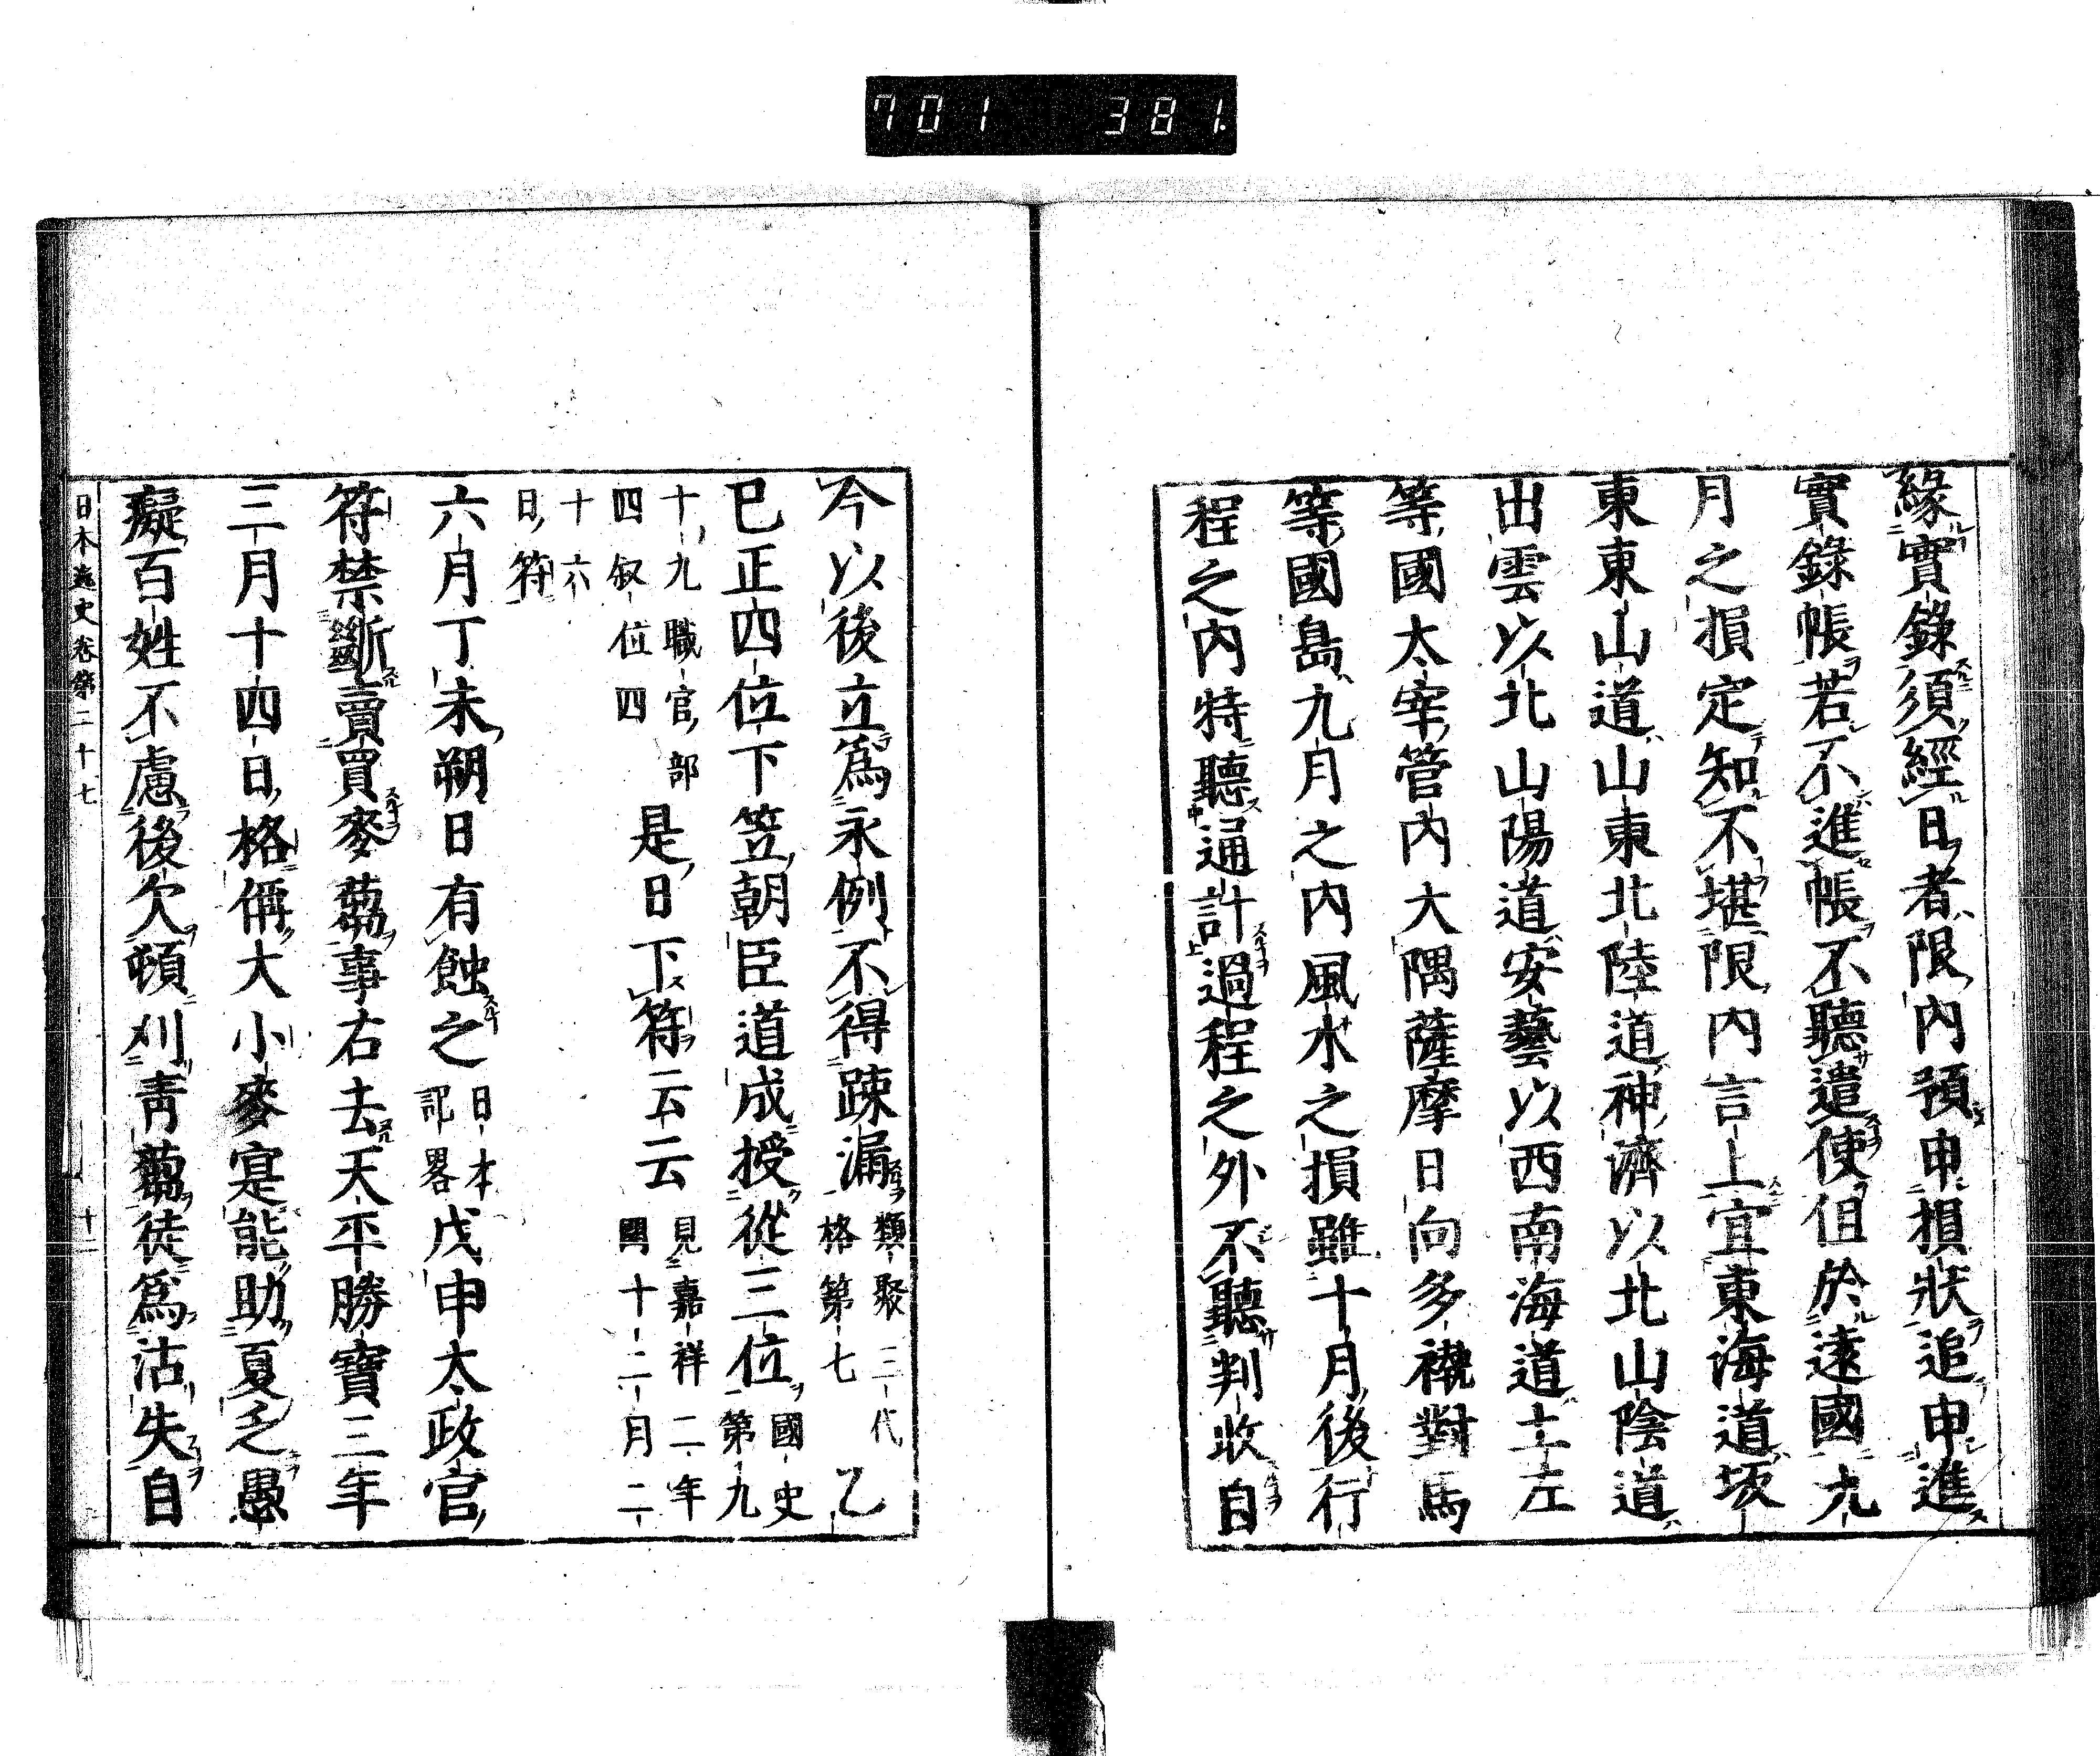 701 381
緣實錄須經日者限內預申損狀追申進
實錄帳若不進帳不聽遣使但於遠國九
月之損定知不堪限內言上宜東海道坂
東東山道山東北陸道神濟以北山陰道
出雲以北山陽道安藝以西南海道土左
等國太宰管內大隅薩摩日向多褹對馬
等國島九月之內風水之損雖十月後行
程之內特聽通計過程之外不聽判收自
今以後立爲永例不得踈漏類聚三代格第七乙
巳正四位下笠朝臣道成授從三位國史第九
十九職官部四叙位四是日下符云云見嘉祥二年閏十二月二
十六日符
六月丁未朔日有蝕之日本記畧戊申太政官
符禁斷賣買麥蒭事右去天平勝寶三年
三月十四日格偁大小麥寔能助夏乏愚
癡百姓不慮後欠頓刈靑蒭徒爲沽失自
日本逸史卷第二十七 十一